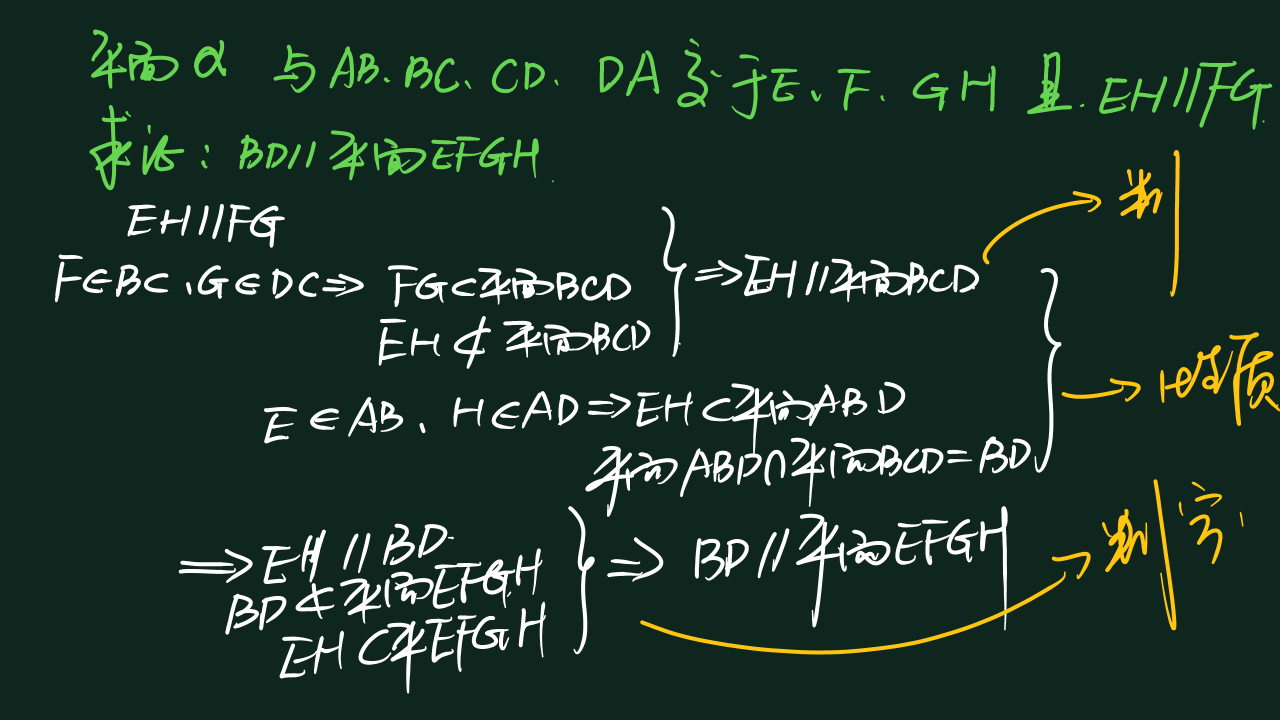 平面α 与AB、BC、CD、DA交于E、F、GH 且 EH//FG.
求证：BD//平面EFGH.
EH//FG
F∈BC、G∈DC⇒ FG⊂平面BCD
EH⊄平面BCD
⇒EH//平面BCD
判
E∈AB、H∈AD⇒EH⊂平面ABD
平面ABD∩平面BCD=BD
性质
⇒EH//BD
BD⊄平面EFGH
EH⊂平EFGH
⇒BD//平面EFGH
判定